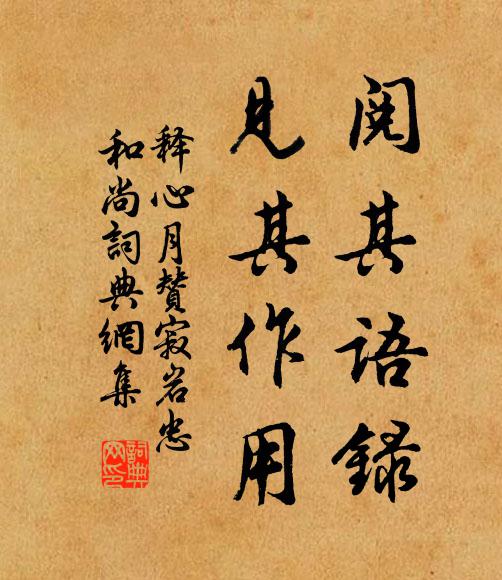 阅其語録
見其作用
释心月賛寂岩忠
和尚詞典網集
詞典